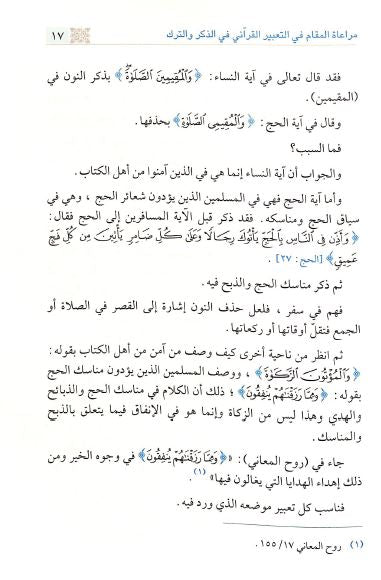 مراعاة المقام في التعبير القرآني في الذكر والترك
١٧
فقد قال تعالى في آية النساء: ﴿وَالْمُقِيمِينَ الصَّلَوٰةَ﴾ بذكر النون في
(المقيمين).
وقال في آية الحج: ﴿وَالْمُقِيمِى الصَّلَوٰةِ﴾ بحذفها.
فما السبب؟
والجواب أن آية النساء إنما هي في الذين آمنوا من أهل الكتاب.
وأما آية الحج فهي في المسلمين الذين يؤدون شعائر الحج ، وهي في
سياق الحج ومناسكه . فقد ذكر قبل الآية المسافرين إلى الحج فقال:
﴿وَأَذِّن فِى النَّاسِ بِالْحَجِّ يَأْتُوكَ رِجَالًا وَعَلَىٰ كُلِّ ضَامِرٍ يَأْتِينَ مِن كُلِّ فَجٍّ
عَمِيقٍ﴾ [الحج: ٢٧] .
ثم ذكر مناسك الحج والذبح فيه.
فهم في سفر ، فلعل حذف النون إشارة إلى القصر في الصلاة أو
الجمع فتقلّ أوقاتها أو ركعاتها.
ثم انظر من ناحية أخرى كيف وصف من آمن من أهل الكتاب بقوله:
﴿وَالْمُؤْتُونَ الزَّكَوٰةَ﴾ ، ووصف المسلمين الذين يؤدون مناسك الحج
بقوله: ﴿وَمِمَّا رَزَقْنَـٰهُمْ يُنفِقُونَ﴾ ؛ ذلك أن الكلام في مناسك الحج والذبائح
والهدي وهذا ليس من الزكاة وإنما هو في الإنفاق فيما يتعلق بالذبح
والمناسك.
جاء في (روح المعاني): «﴿وَمِمَّا رَزَقْنَـٰهُمْ يُنفِقُونَ﴾ في وجوه الخير ومن
ذلك إهداء الهدايا التي يغالون فيها» (١) .
فناسب كل تعبير موضعه الذي ورد فيه.
(١) روح المعاني ١٧/ ١٥٥ .